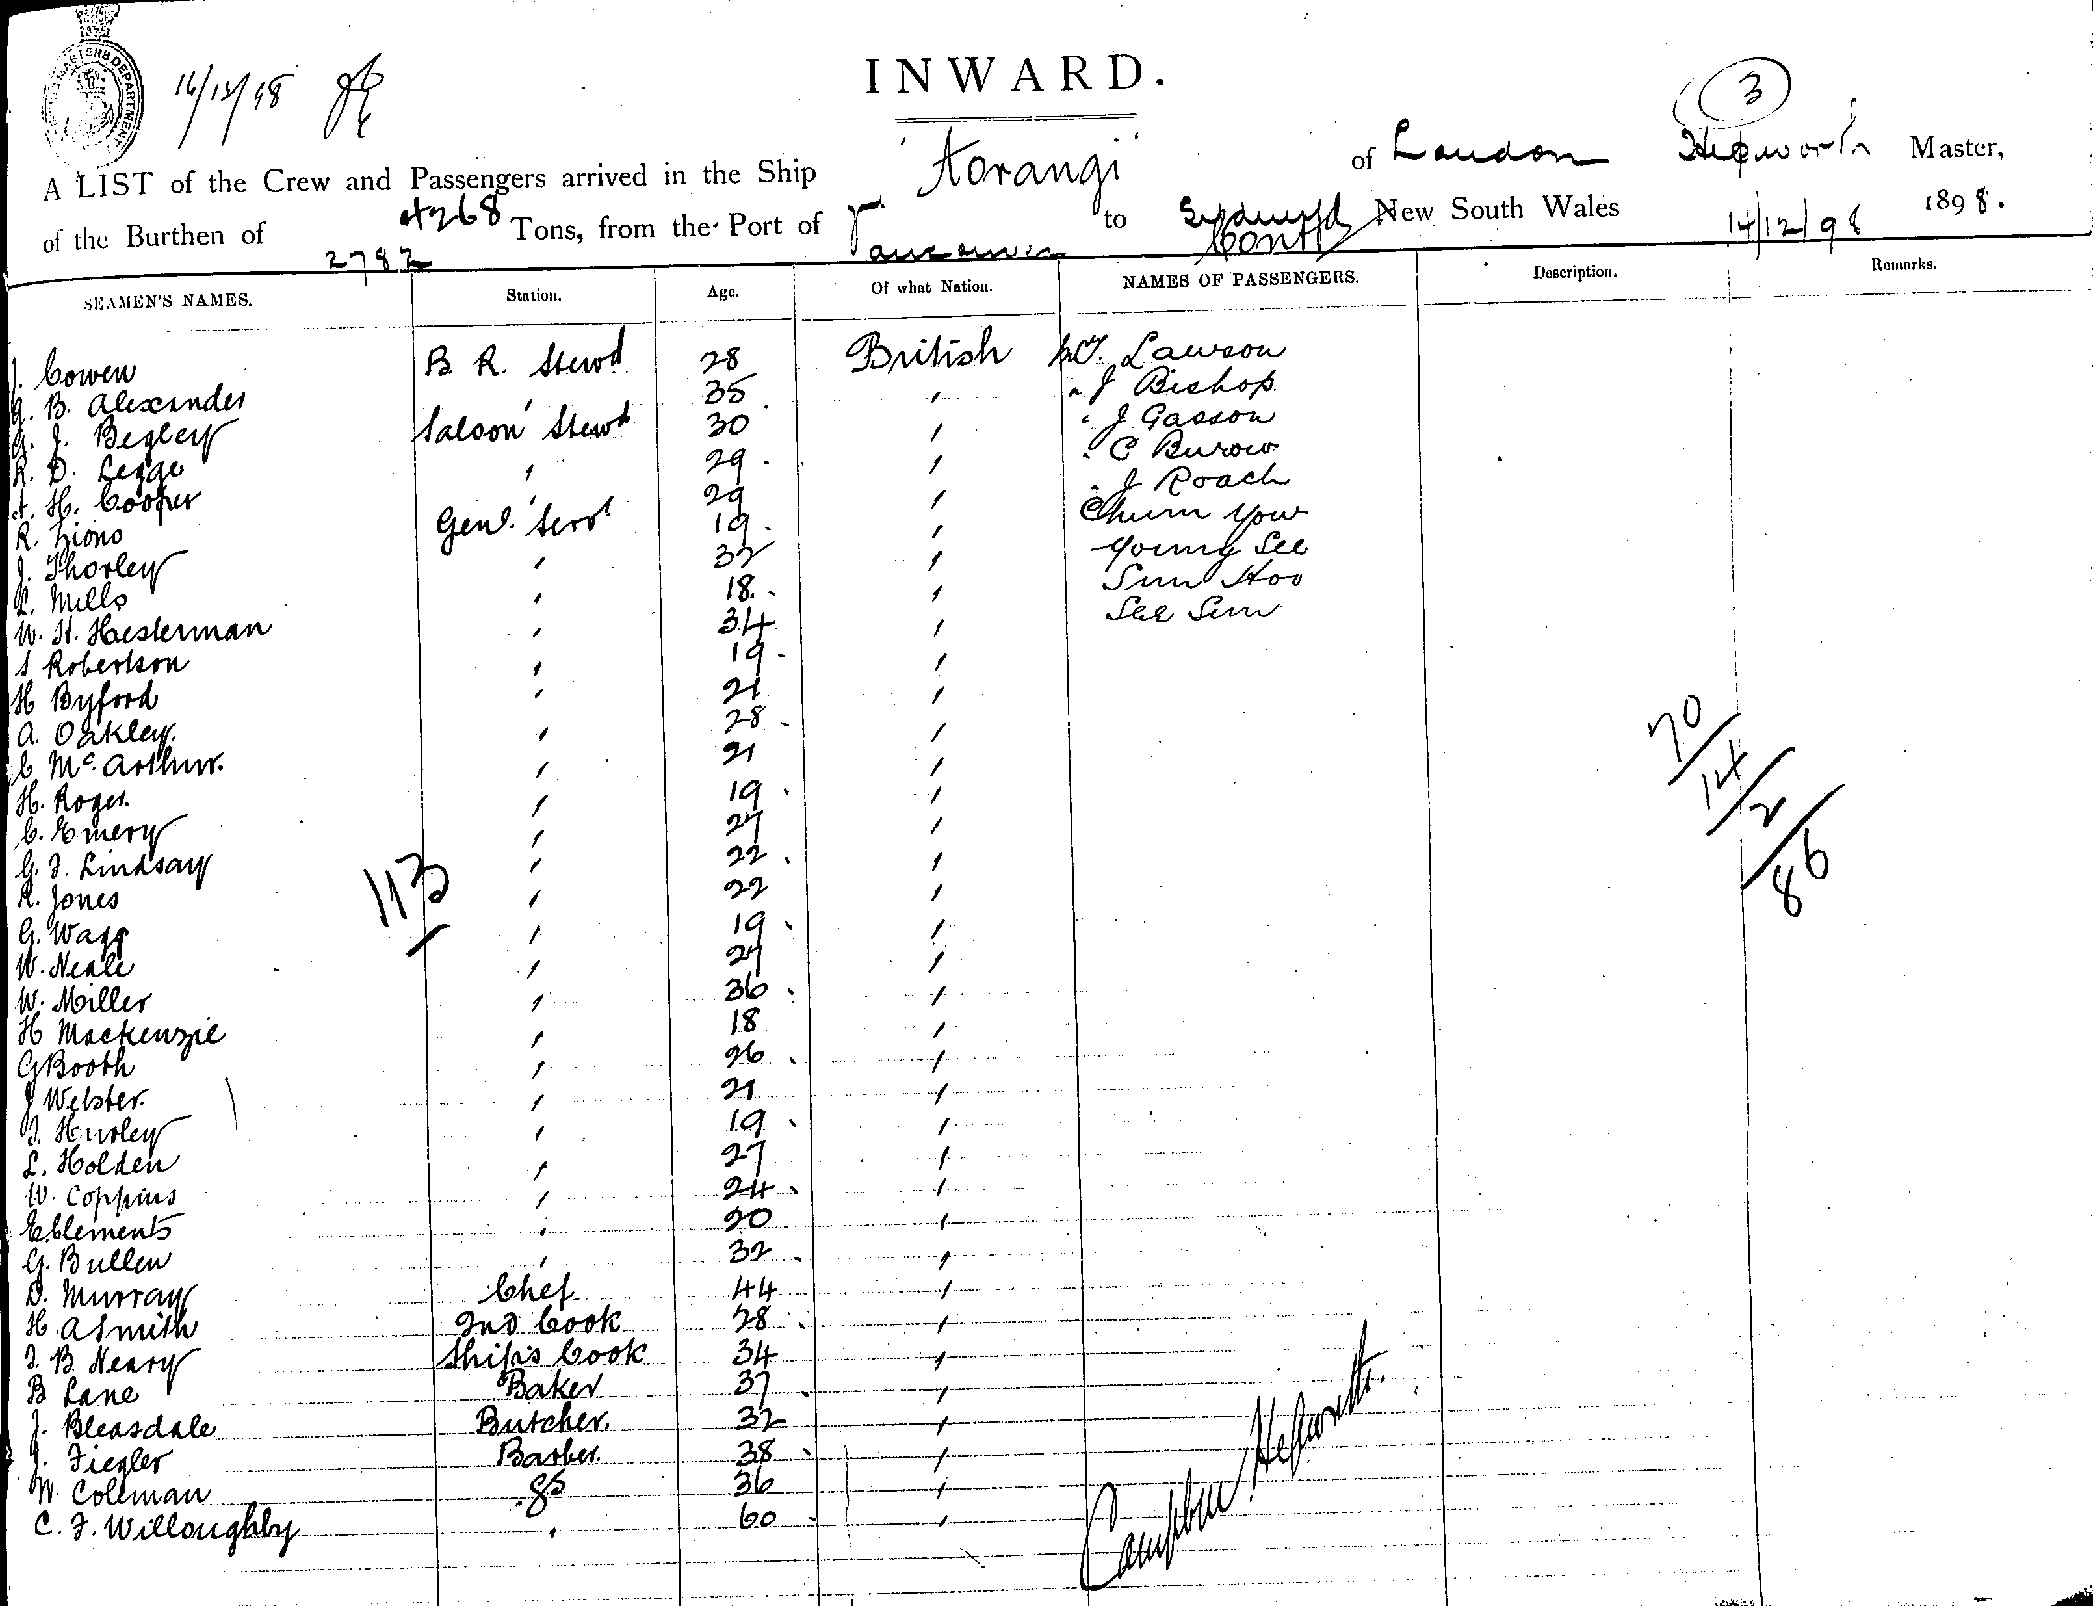 INWARD.
16/12/98
3
A LIST of the Crew and Passengers arrived in the Ship "Aorangi" of London Hepworth Master,
of the Burthen of 4268 Tons, from the Port of Vancouver to Sydney New South Wales 14/12/98 1898.
2782
SEAMEN'S NAMES. Station. Age. Of what Nation. NAMES OF PASSENGERS. Description. Remarks.
J. Cowen B R. Stewd 28 British Lawson
B. Alexander " 35 " " J Bishop
J. Begley Saloon Stewd 30 " " J Gasson
R. D. Legge " 29 " " C Burow
A. H. Cooper " 29 " " J Roach
R. Lions Genl. Servt 19 " Chum Yow
J. Thorley " 32 " Young See
L. Mills " 18 " Sun Hoo
W. H. Hesterman " 34 " See Sun
S Robertson " 19 "
H Byford " 21 "
A. Oakley. " 28 "
C McArthur. " 21 "
H. Roger. " 19 "
C. Emery " 27 "
G. F. Lindsay " 22 "
R. Jones " 22 "
G. Wagg " 19 "
W. Neale " 27 "
W. Miller " 36 "
H Mackenzie " 18 "
G Booth " 26 "
J Webster. " 21 "
T. Hurley " 19 "
L. Holden " 27 "
W. Coppins " 24 "
E Clements " 20 "
G. Bullen " 32 "
D. Murray Chef 44 "
H. A Smith 2nd Cook 28 "
T. B Neary Ship's Cook 34 "
B Lane Baker 37 "
J. Bleasdale Butcher. 32 "
J. Fiegler Barber. 38 "
W Coleman 36 "
C. F. Willoughby " 60 "
113
70/14/2/86
Campbell Hepworth.